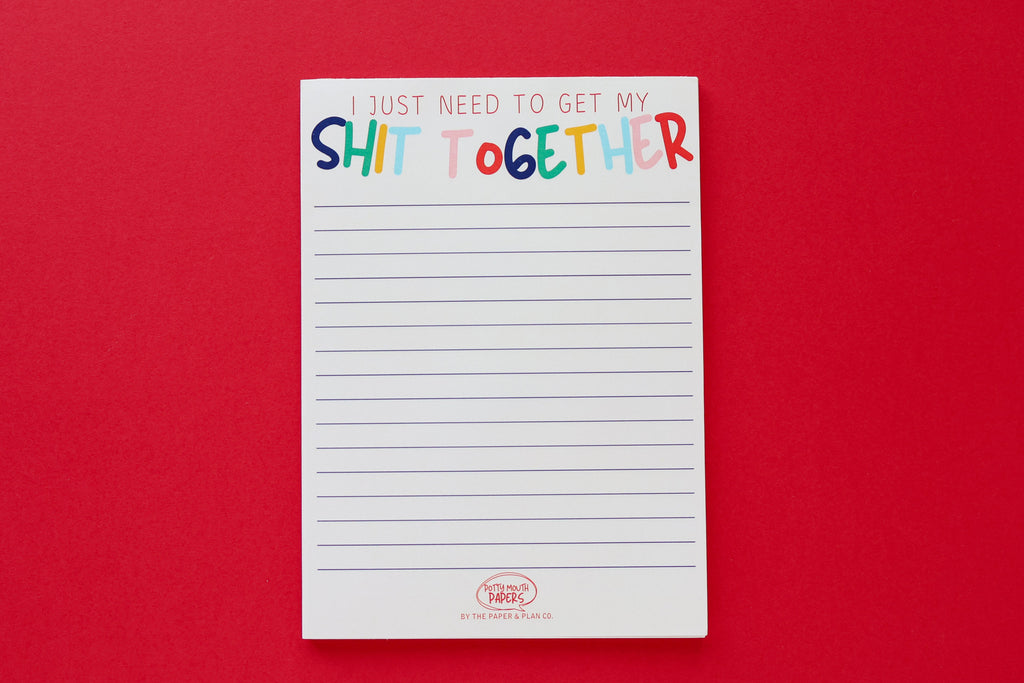 I JUST NEED TO GET MY
SHIT TOGETHER
POTTY MOUTH
PAPERS
BY THE PAPER & PLAN CO.